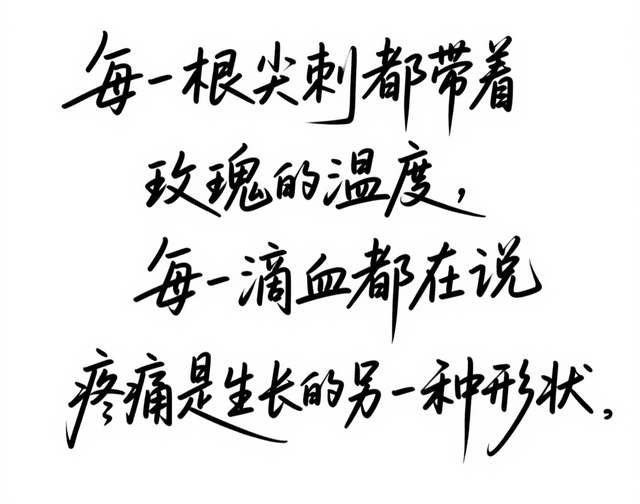 每一根尖刺都带着
玫瑰的温度,
每一滴血都在说
疼痛是生长的另一种形状。